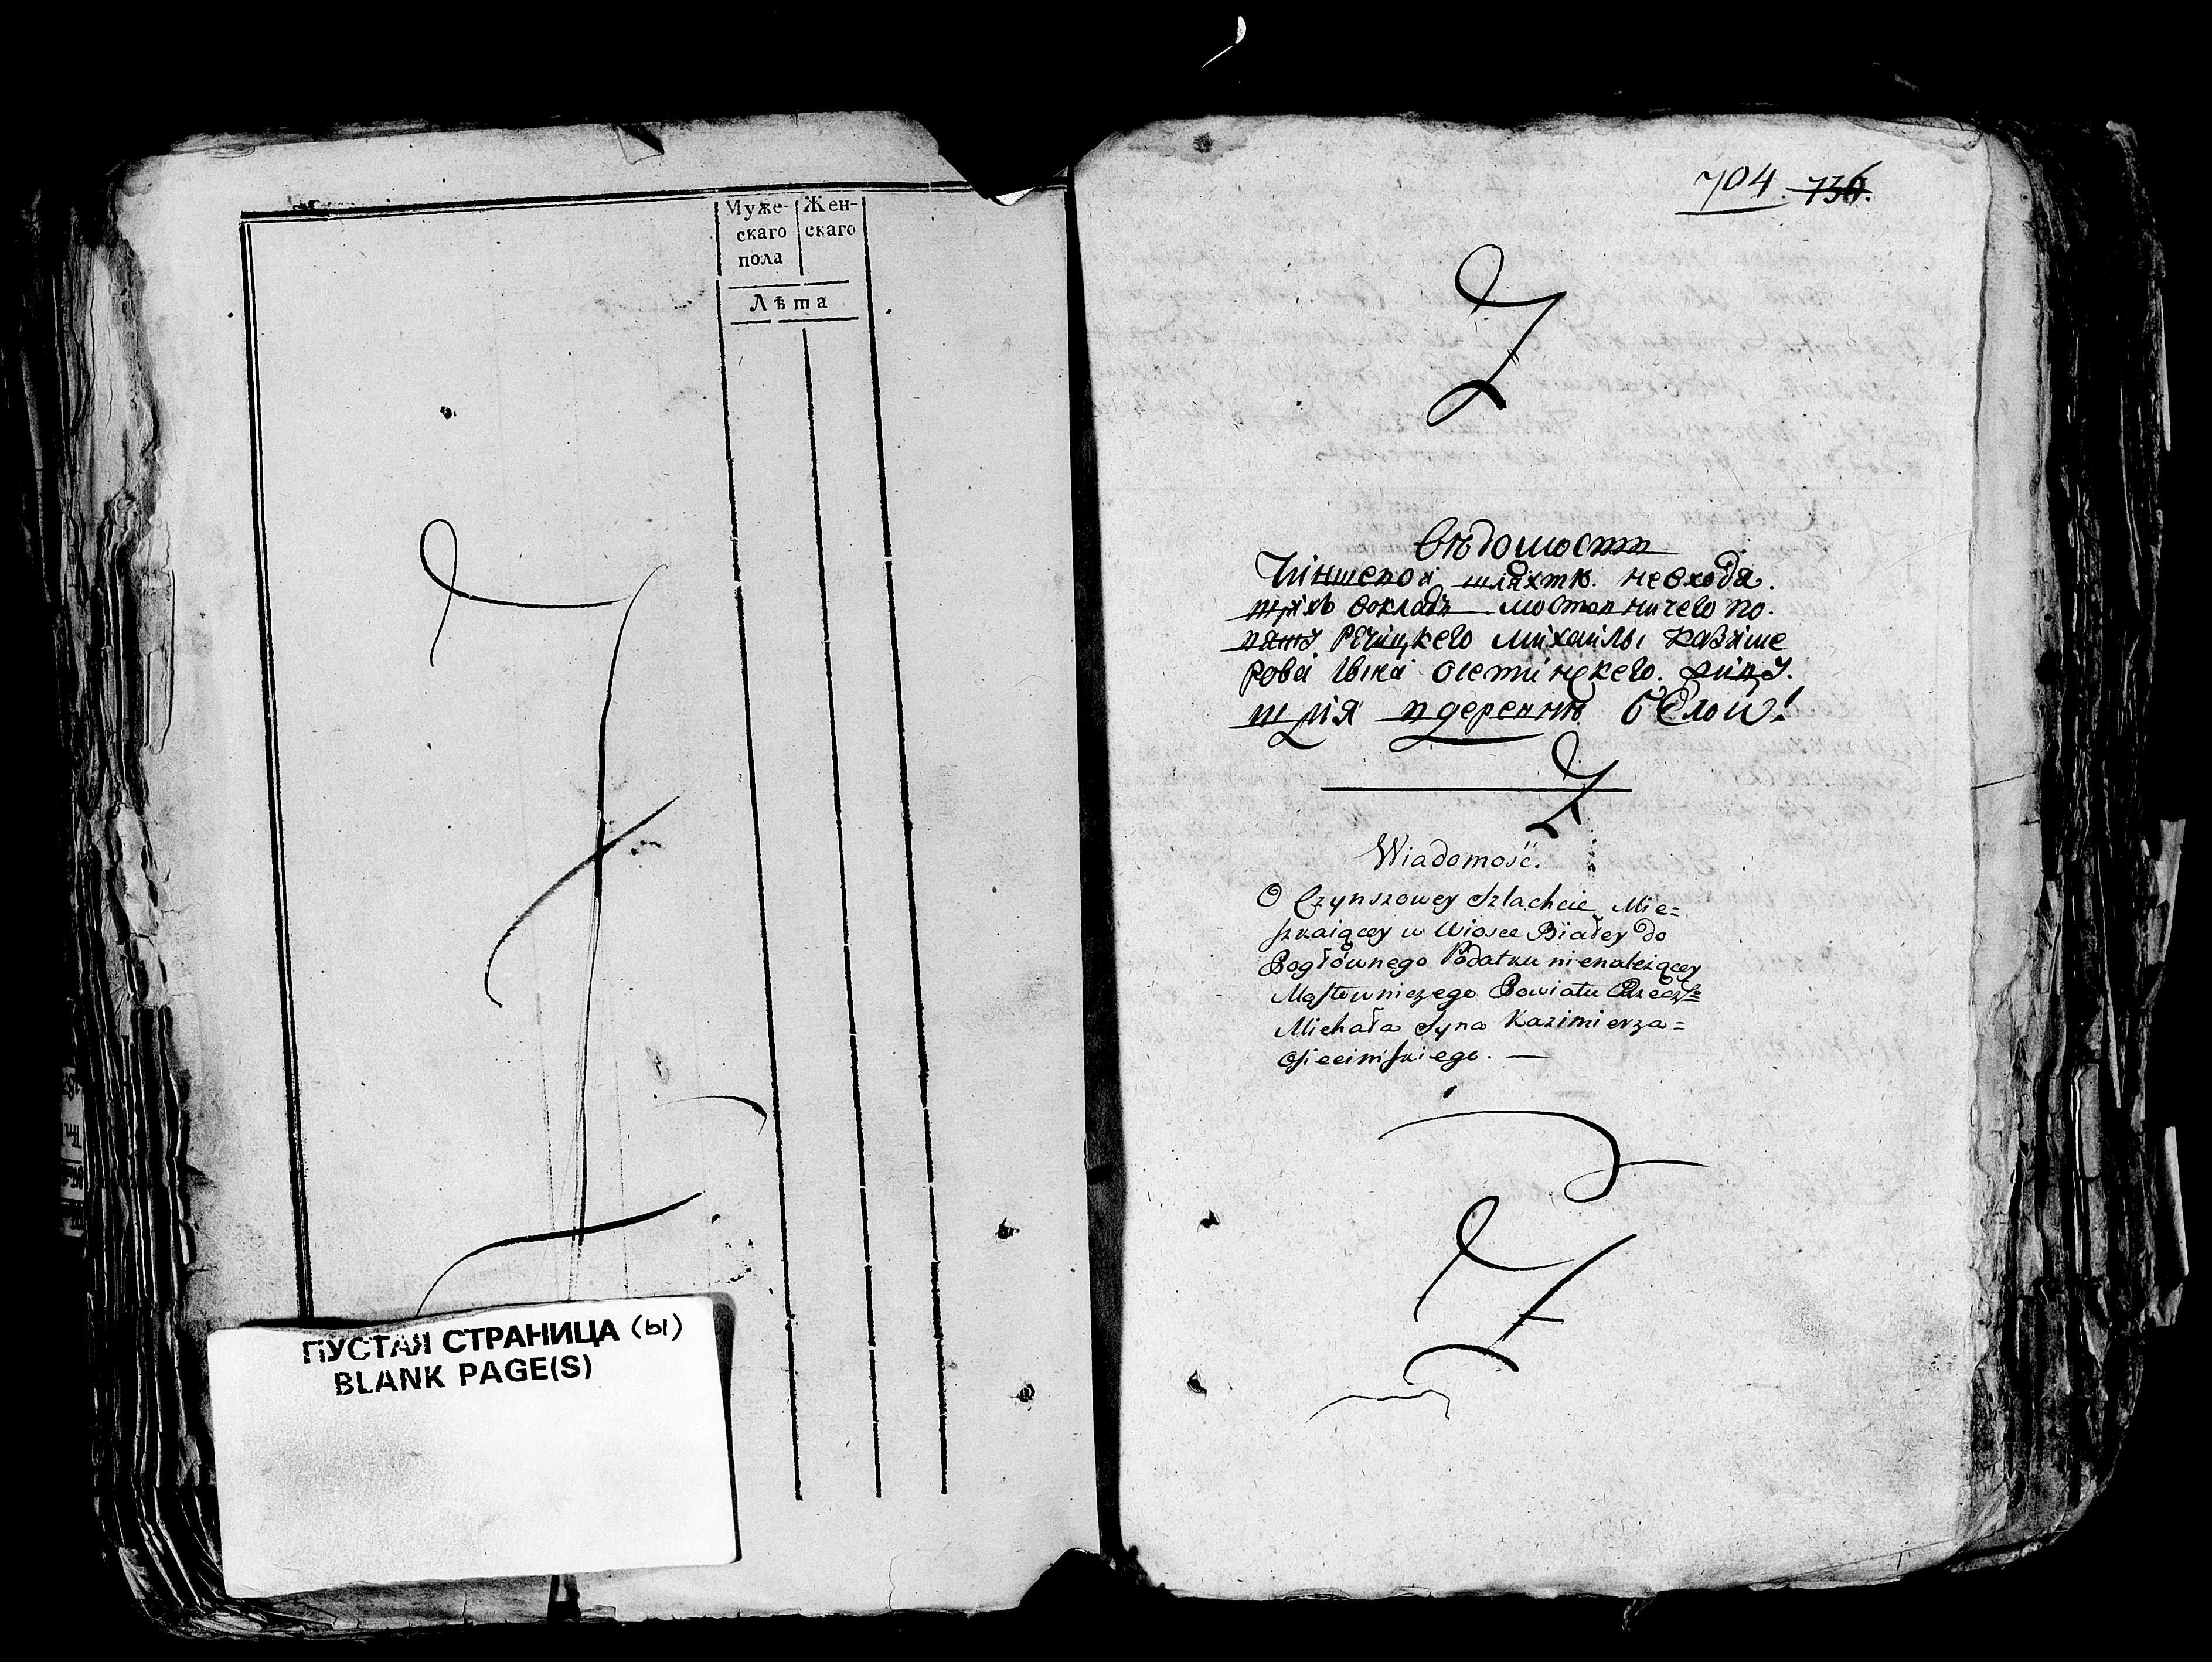 Муже-
скаго
пола
Жен-
скаго
Лѣта
ПУСТАЯ СТРАНИЦА (ы)
BLANK PAGE(S)
704. 736.
Вѣдомость
Чиншевой шляхтѣ невходя.
щіхъ вокладъ мостовничего по.
вѣту Речицкего Михаилы Казиме
рова сына Осетинскего.
въ деревнѣ Белой!
Wiadomość.
O Czynszowey Szlachcie Mie=
szkaiącey w Wiosce Białey do
Pogłównego Podatku nienależącey
Mostowniczego Powiatu Rzeczᵍᵒ
Michała Syna Kazimierza=
Osiecimskiego. —